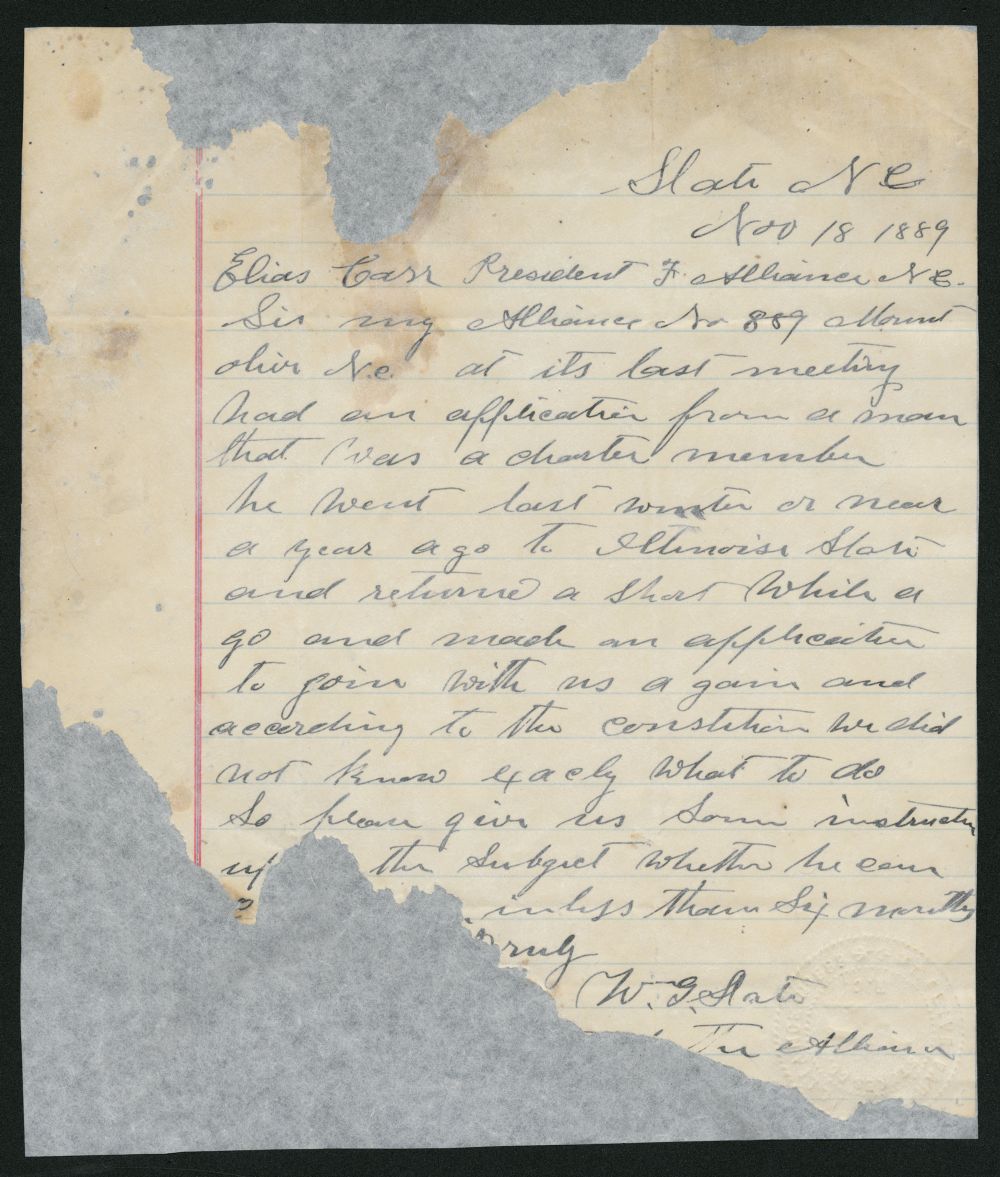 Slate N C
Nov 18 1889
Elias Carr President F. Alliance N C.
Sir my Alliance No 889 Mount
olive N.c. at its last meeting
had an application from a man
that was a charter member
he went last winter or near
a year a go to Illinoise State
and returned a short while a
go and made an application
to join with us a gain and
according to the constition we did
not know exacly what to do
So pleas give us Some instruction
the Subject whether he can
in less than Six months
truly
W. G. Slate
The Alliance